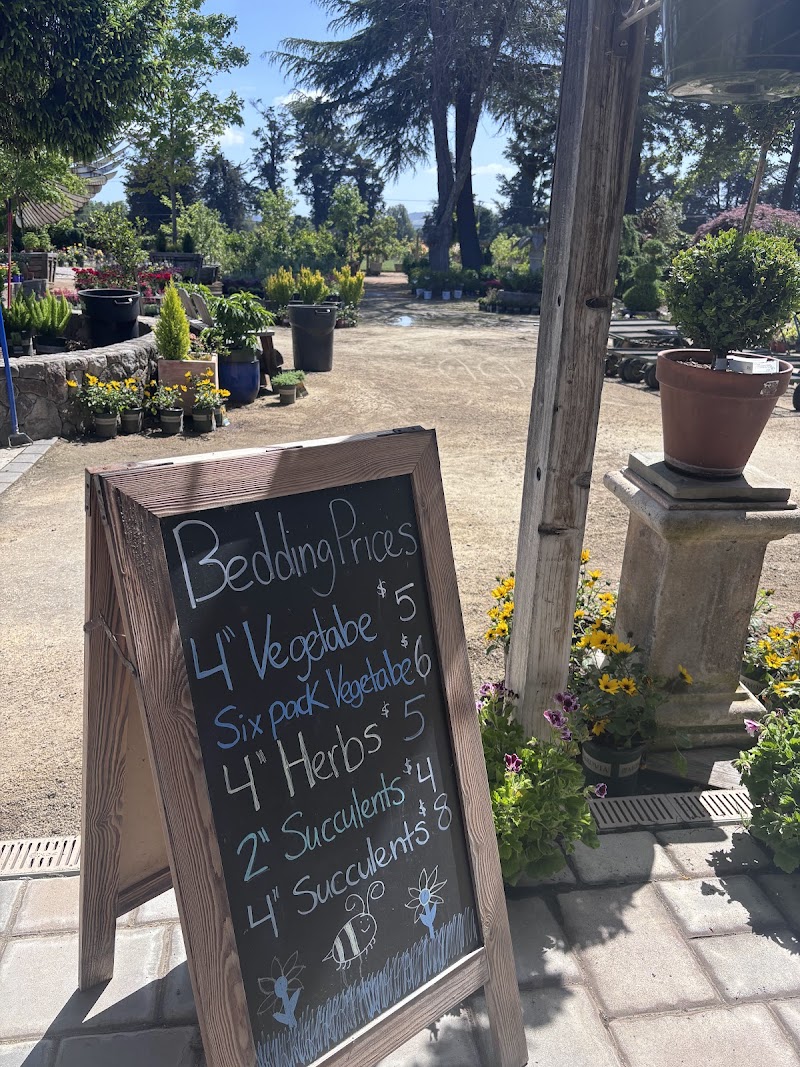 Bedding Prices
4" Vegetabe $5
Six pack Vegetabe $6
4" Herbs $5
2" Succulents $4
4" Succulents $8